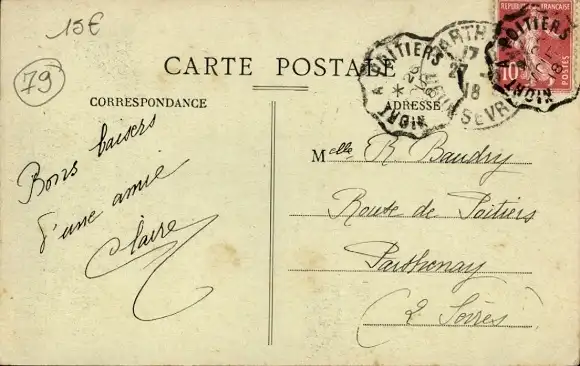 15€
79
CARTE POSTALE
CORRESPONDANCE
ADRESSE
REPUBLIQUE FRANÇAISE
10
POSTES
NIORT A POITIERS
PARTH
17
18
SEVRE
NIORT A POITIERS
Bons baisers
d'une amie
Claire
Melle R Baudry
Route de Poitiers
Parthenay
(2 Sèvres)